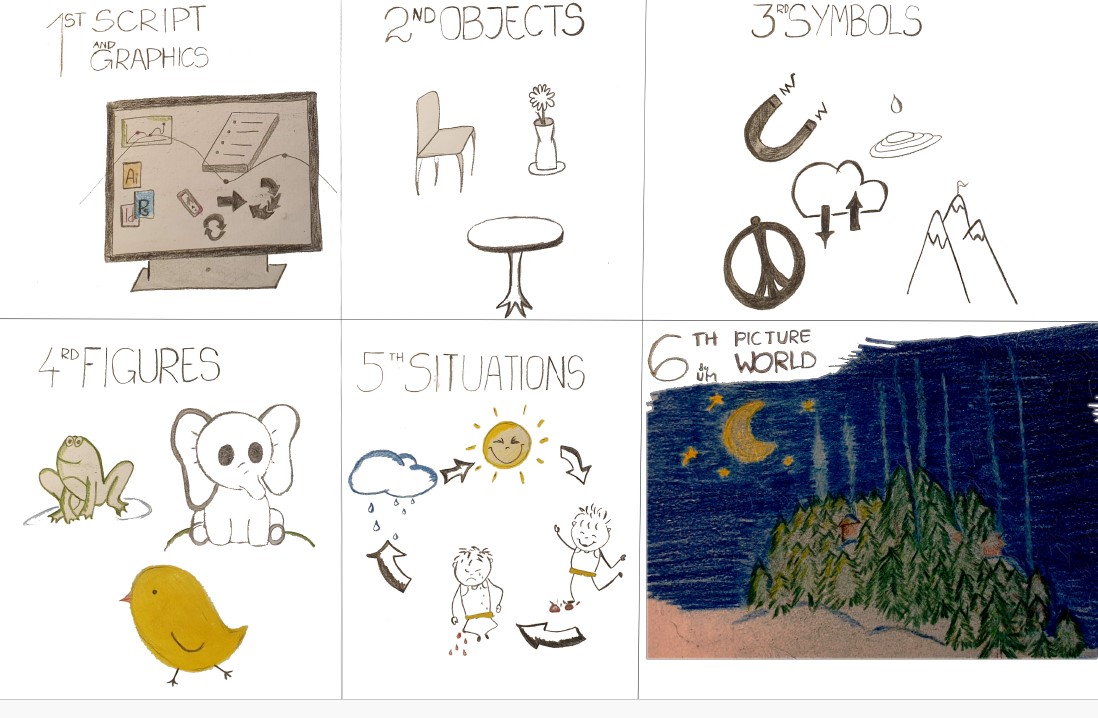 1ST SCRIPT
AND
GRAPHICS
Ai
Ps
Id
2ND OBJECTS
3RD SYMBOLS
4RD FIGURES
5TH SITUATIONS
6TH PICTURE
By UM WORLD